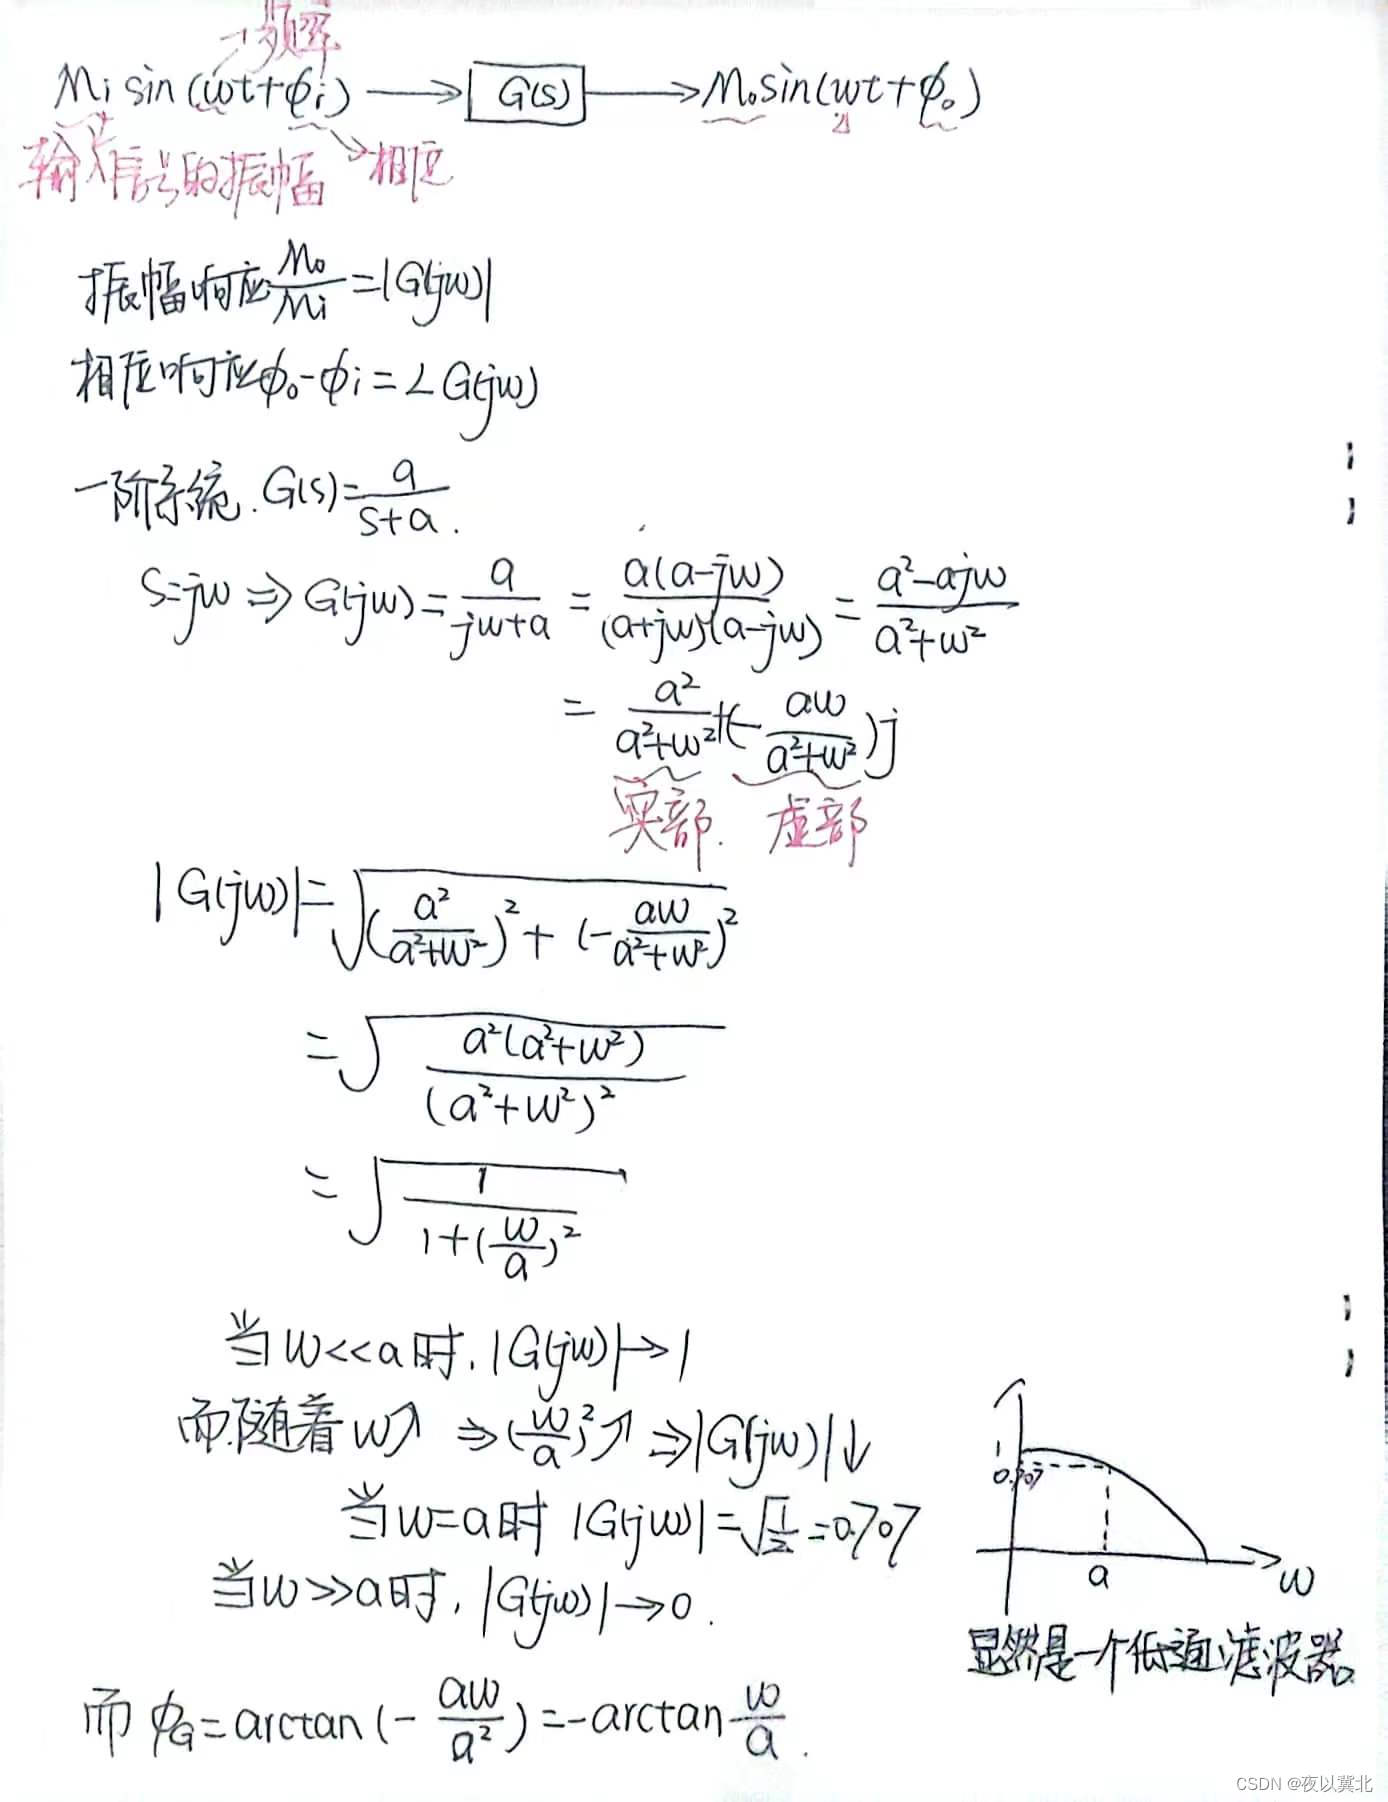 →频率
Mi sin(ωt+φi) → G(s) → Mo sin(ωt+φo)
输入信号的振幅 相位
振幅响应 Mo/Mi = |G(jω)|
相位响应 φo-φi = ∠G(jω)
一阶系统. G(s) = a/(s+a).
s=jω ⇒ G(jω) = a/(jω+a) = a(a-jω)/((a+jω)(a-jω)) = (a²-ajω)/(a²+ω²)
= a²/(a²+ω²) + (-aω/(a²+ω²))j
实部. 虚部
|G(jω)| = √((a²/(a²+ω²))² + (-aω/(a²+ω²))²)
= √(a²(a²+ω²)/(a²+ω²)²)
= √(1/(1+(ω/a)²))
当ω<<a时, |G(jω)|→1
而随着ω↑ ⇒ (ω/a)²↑ ⇒ |G(jω)|↓
当ω=a时 |G(jω)| = √(1/2) = 0.707
当ω>>a时, |G(jω)|→0.
1
0.707
a
ω
显然是一个低通滤波器.
而 φG = arctan(-aω/a²) = -arctan ω/a.
CSDN @夜以冀北